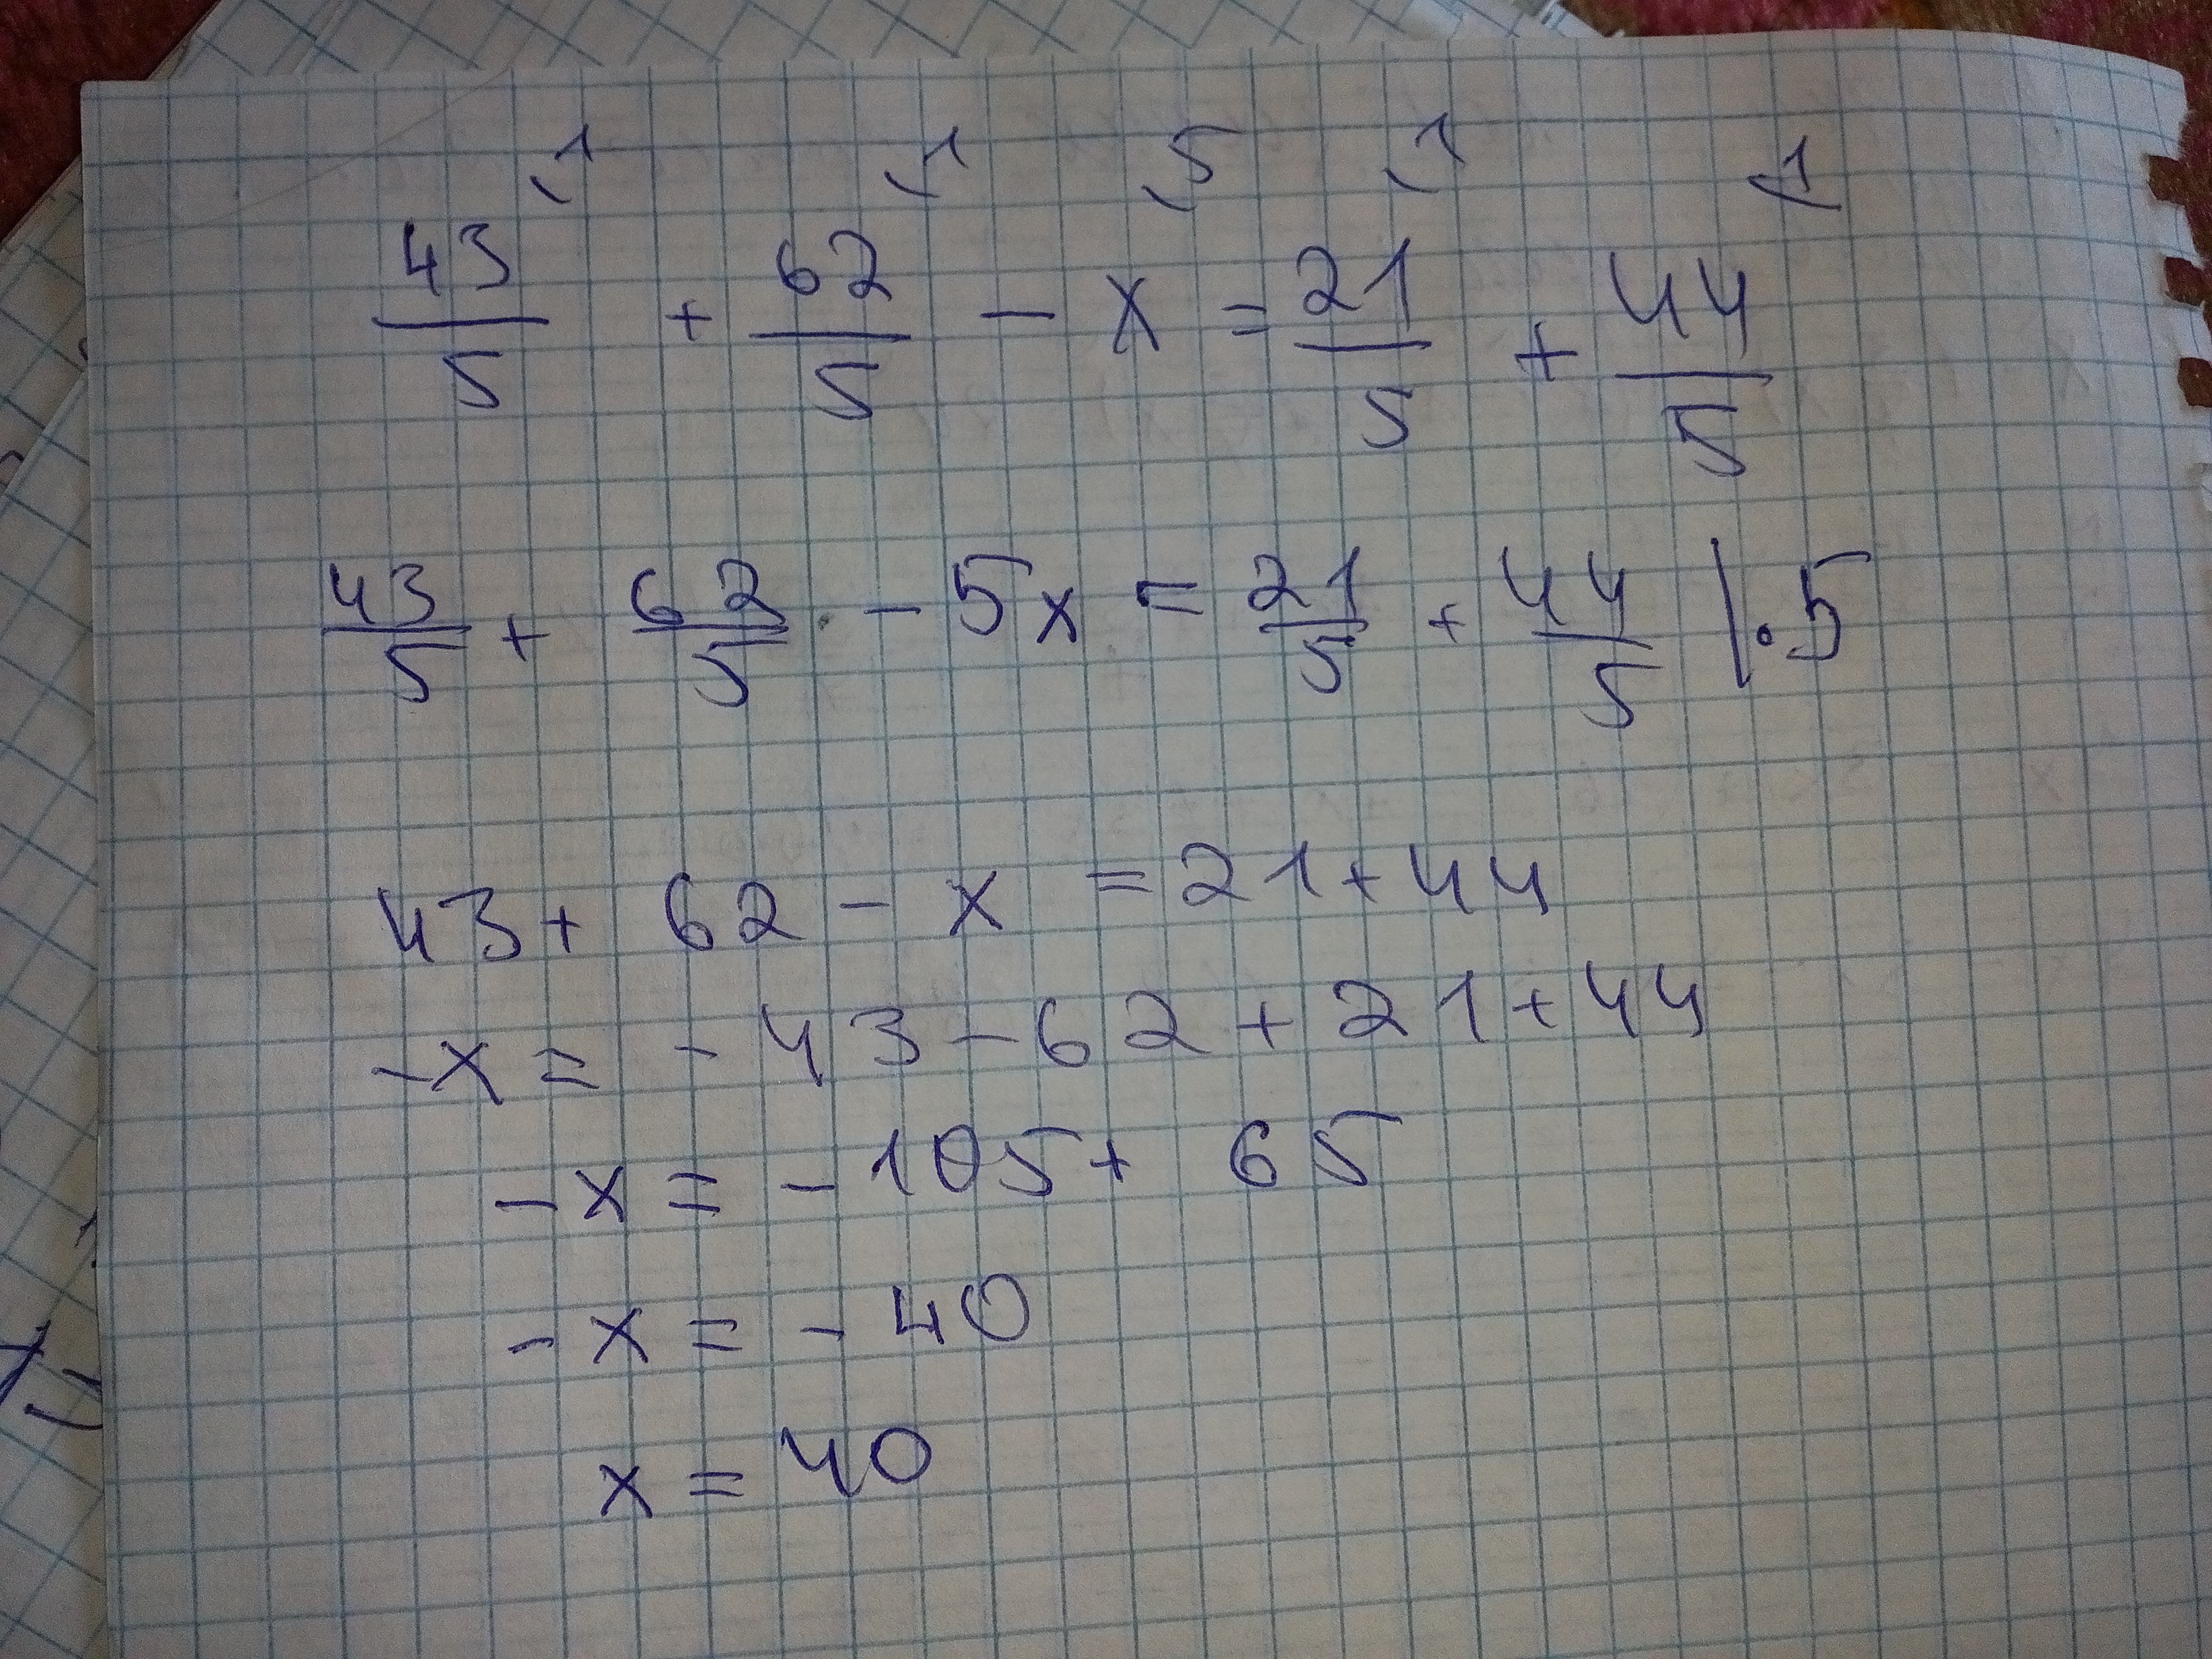 1 1 5 1 1
43/5 + 62/5 - x = 21/5 + 44/5
43/5 + 62/5 - 5x = 21/5 + 44/5 |·5
43 + 62 - x = 21 + 44
-x = - 43 - 62 + 21 + 44
-x = - 105 + 65
-x = - 40
x = 40